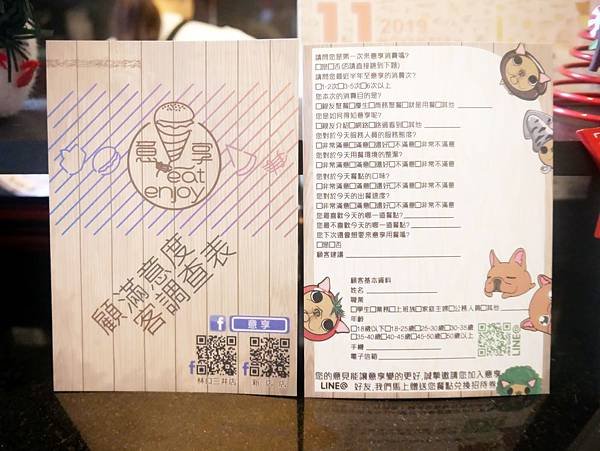 11 2019
意享
eat
enjoy
顧客
滿意度
調查表
意享
林口三井店
新店店
請問您是第一次來意享消費嗎?
□是□否(否請直接跳到下題)
請問您最近半年至意享的消費次?
□1-2次□3-5次□6次以上
您本次的消費目的是?
□親友聚餐□慶生□商務聚餐□就是用餐□其他
您是如何得知意享呢?
□親友介紹□網路□路過看到□其他
您對於今天服務人員的服務態度?
□非常滿意□滿意□還好□不滿意□非常不滿意
您對於今天用餐環境的整潔?
□非常滿意□滿意□還好□不滿意□非常不滿意
您對於今天餐點的口味?
□非常滿意□滿意□還好□不滿意□非常不滿意
您對於今天的出餐速度?
□非常滿意□滿意□還好□不滿意□非常不滿意
您最喜歡今天的哪一道餐點?
您最不喜歡今天的哪一道餐點?
您下次還會想要來意享用餐嗎?
□是□否
顧客建議
顧客基本資料
姓名
職業
□學生□業務□上班族□家庭主婦□公務人員□其他
年齡
□18歲以下□18-25歲□25-30歲□30-35歲
□35-40歲□40-45歲□45-50歲□50歲以上
手機
電子信箱
LINE@
您的意見能讓意享變的更好,誠摯邀請您加入意享
LINE@ 好友,我們馬上贈送您餐點兌換招待券